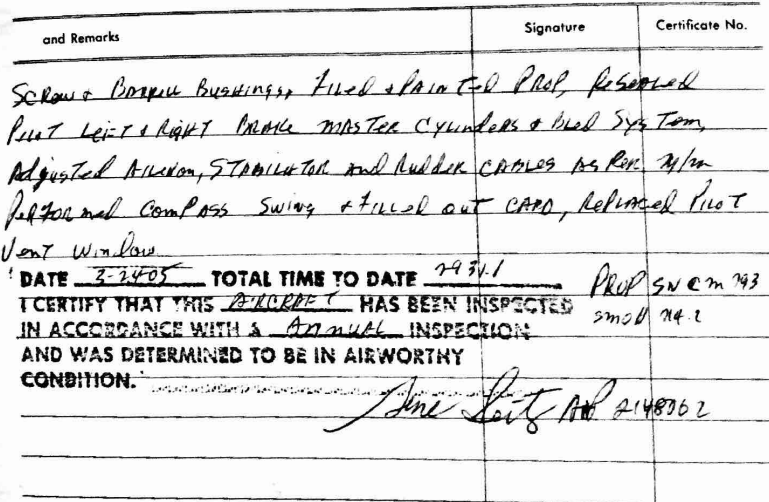 and Remarks Signature Certificate No.
Screw & Barrell Bushings, Filed & Painted Prop, Resealed
Pilot Left & Right Brake Master Cylinders & Bled System,
Adjusted Aileron, Stabilator and Rudder Cables As Per M/M
Performed Compass Swing & Filled out Card, Replaced Pilot
Vent Window
DATE 3-24-05 TOTAL TIME TO DATE 2931.1 PROP SN CM 793
I CERTIFY THAT THIS AIRCRAFT HAS BEEN INSPECTED
IN ACCORDANCE WITH A Annual INSPECTION
AND WAS DETERMINED TO BE IN AIRWORTHY
CONDITION.
Gene AP 2148062